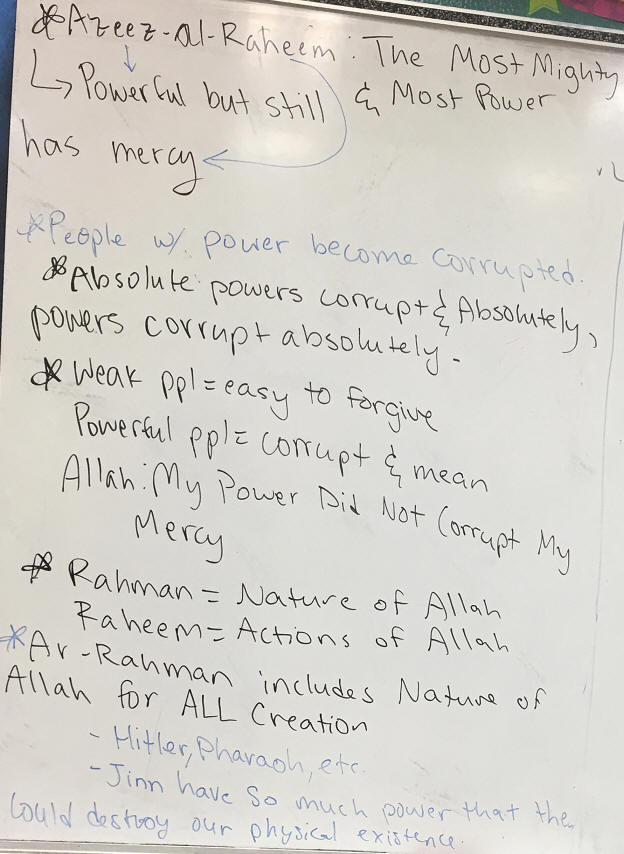 *Azeez-al-Raheem: The Most Mighty
& Most Power
↳ Powerful but still
has mercy
*People w/ power become corrupted.
*Absolute powers corrupt & Absolutely,
powers corrupt absolutely.
*Weak ppl = easy to forgive
Powerful ppl = corrupt & mean
Allah: My Power Did Not Corrupt My
Mercy
*Rahman = Nature of Allah
Raheem = Actions of Allah
*Ar-Rahman includes Nature of
Allah for ALL Creation
- Hitler, Pharaoh, etc.
- Jinn have so much power that the
could destroy our physical existence.